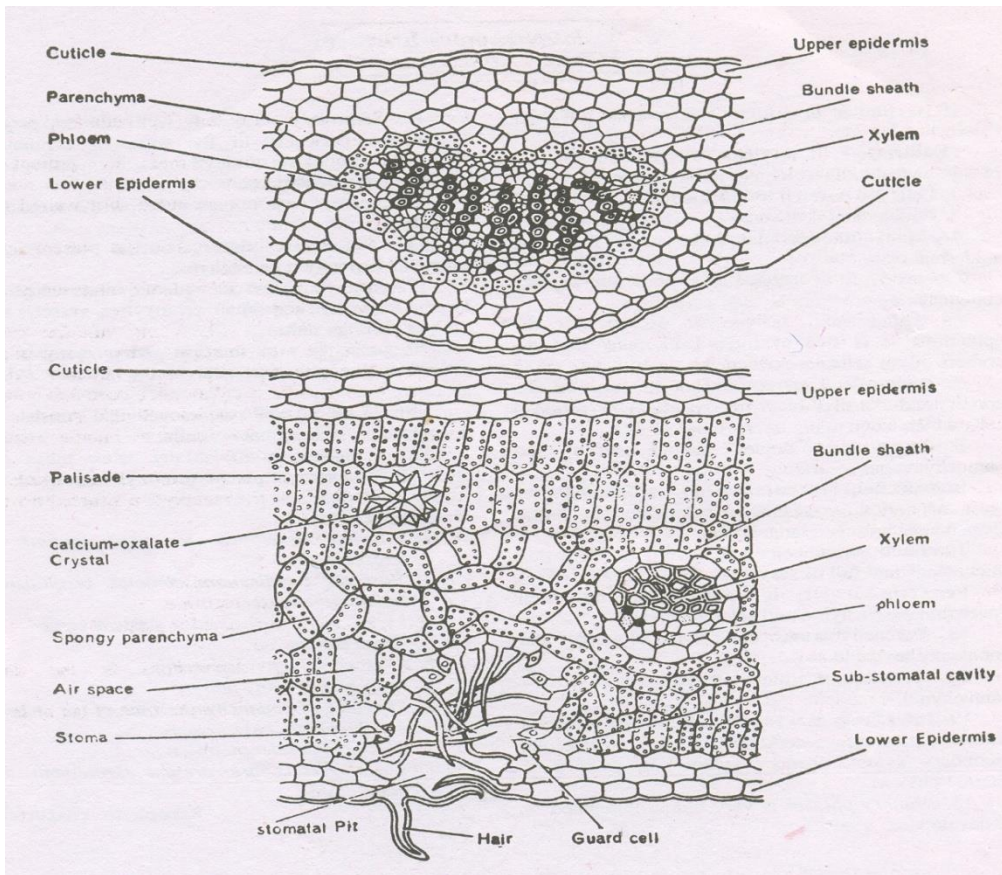 Cuticle
Parenchyma
Phloem
Lower Epidermis
Upper epidermis
Bundle sheath
Xylem
Cuticle
Cuticle
Palisade
calcium-oxalate
Crystal
Spongy parenchyma
Air space
Stoma
stomatal Pit
Hair
Guard cell
Upper epidermis
Bundle sheath
Xylem
phloem
Sub-stomatal cavity
Lower Epidermis